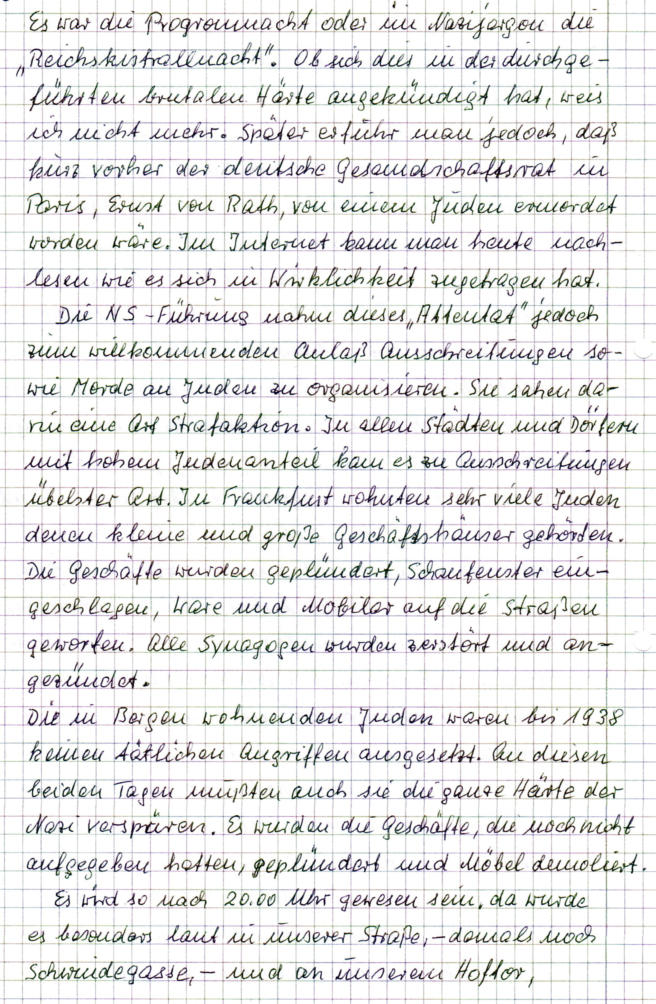 Es war die Progromnacht oder im Nazijargon die
„Reichskistrallnacht". Ob sich dies in der durchge-
führten brutalen Härte angekündigt hat, weis
ich nicht mehr. Später erfuhr man jedoch, daß
kurz vorher der deutsche Gesandschaftsrat in
Paris, Ernst von Rath, von einem Juden ermordet
worden wäre. Im Internet kann man heute nach-
lesen wie es sich in Wirklichkeit zugetragen hat.
Die NS-Führung nahm dieses „Attentat" jedoch
zum willkommenden Anlaß Ausschreitungen so-
wie Morde an Juden zu organisieren. Sie sahen da-
rin eine Art Strafaktion. In allen Städten und Dörfern
mit hohem Judenanteil kam es zu Ausschreitungen
übelster Art. In Frankfurt wohnten sehr viele Juden
denen kleine und große Geschäftshäuser gehörten.
Die Geschäfte wurden geplündert, Schaufenster ein-
geschlagen, Ware und Mobilar auf die Straßen
geworfen. Alle Synagogen wurden zerstört und an-
gezündet.
Die in Bergen wohnenden Juden waren bis 1938
keinen tätlichen Angriffen ausgesetzt. An diesen
beiden Tagen mußten auch sie die ganze Härte der
Nazi verspüren. Es wurden die Geschäfte, die noch nicht
aufgegeben hatten, geplündert und Möbel demoliert.
Es wird so nach 20.00 Uhr gewesen sein, da wurde
es besonders laut in unserer Straße, – damals noch
Schmidegasse, – und an unserem Hoftor,